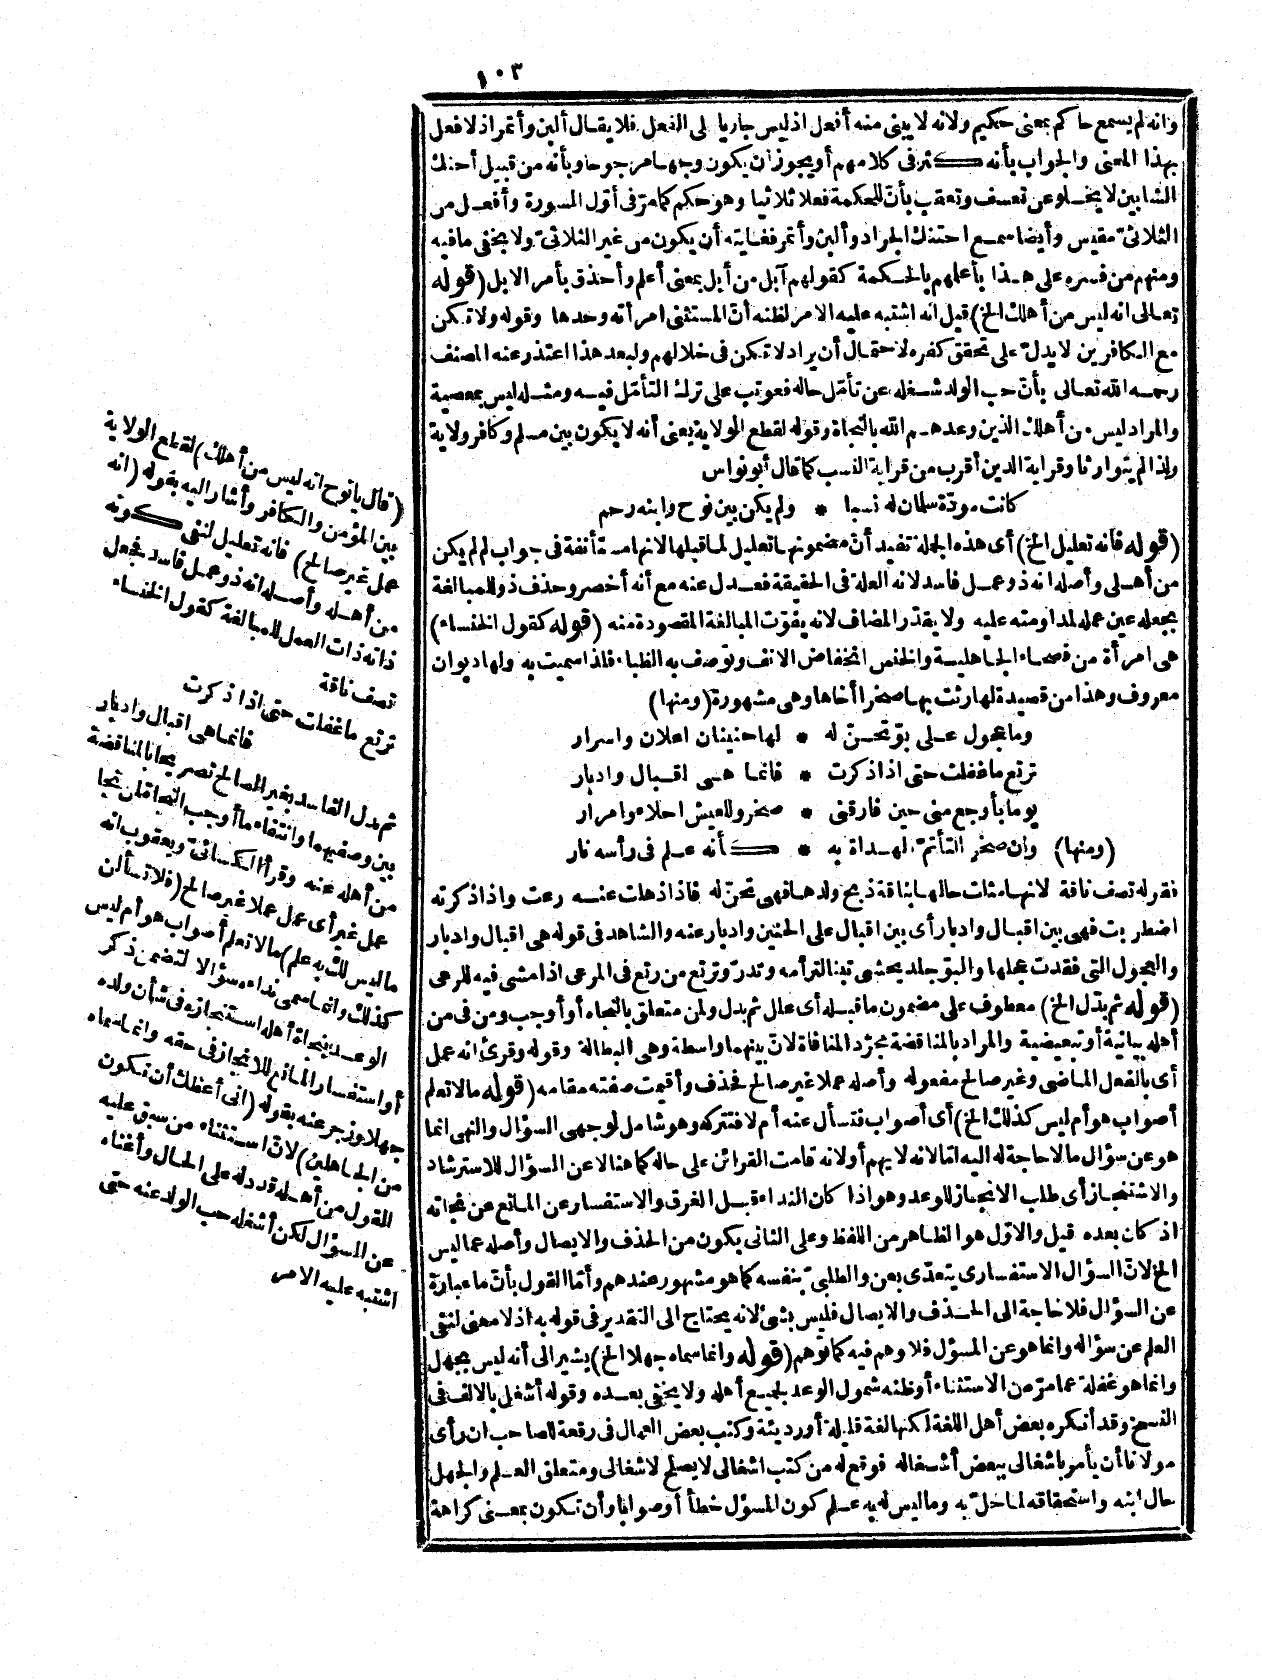 ١٠٣
وانه لم يسمع حاكم بمعنى حكيم ولانه لا يبنى منه أفعل اذ ليس جاريا على الفعل فلا يقال ألبن وأتمر اذ لا فعل
بهذا المعنى والجواب بأنه كثر فى كلامهم أو يجوز ان يكون وجها مرجوحا وبأنه من قبيل أحنك
الشاتين لا يخلو عن تعسف وتعقب بأن للحكمة فعلا ثلاثيا وهو حكم كما مر فى أول السورة وأفعل من
الثلاثى مقيس وأيضا سمع احتنك الجراد وألبن وأتمر فغايته أن يكون من غير الثلاثى ولا يخفى ما فيه
ومنهم من فسره على هذا بأعلمهم بالحكمة كقولهم آبل من أبل بمعنى أعلم وأحذق بأمر الابل (قوله
تعالى انه ليس من أهلك الخ) قيل انه اشتبه عليه الامر لظنه أن المستثنى امرأته وحدها وقوله ولا تكن
مع الكافرين لا يدل على تحقق كفره لاحتمال أن يراد لا تكن فى خلالهم ولبعد هذا اعتذر عنه المصنف
رحمه الله تعالى بأن حب الولد شغله عن تأمّل حاله فعوتب على ترك التأمّل فيه ومثله ليس بمعصية
والمراد ليس من أهلك الذين وعدهم الله بالنجاة وقوله لقطع الولاية يعنى أنه لا يكون بين مسلم وكافر ولاية
ولذا لم يتوارثا وقرابة الدين أقرب من قرابة النسب كما قال أبو نواس
كانت مودّة سلمان له نسبا * ولم يكن بين نوح وابنه رحم
(قوله فانه تعليل الخ) أى هذه الجملة تفيد أن مضمونها تعليل لما قبلها لانها مستأنفة فى جواب لم لم يكن
من أهلى وأصله انه ذو عمل فاسد لانه العلة فى الحقيقة فعدل عنه مع أنه أخصر وحذف ذو للمبالغة
بجعله عين عمله لمداومته عليه ولا يقدّر المضاف لانه يفوّت المبالغة المقصودة منه (قوله كقول الخنساء)
هى امرأة من فصحاء الجاهلية والخنس انخفاض الانف وتوصف به الظباء فلذا سميت به ولها ديوان
معروف وهذا من قصيدة لها رثت بها صخرا أخاها وهى مشهورة (ومنها)
وما عجول على بوّ تحنّ له * لها حنينان اعلان واسرار
ترتع ما غفلت حتى اذا ذكرت * فانما هى اقبال وادبار
يوما بأوجع منى حين فارقنى * صخر وللعيش احلاء وامرار
(ومنها) وان صخر التأتمّ الهداة به * كأنه علم فى رأسه نار
فقوله تصف ناقة لانها مثلت حالها بناقة ذبح ولدها فهى تحنّ له فاذا ذهلت عنه رعت واذا ذكرته
اضطربت فهى بين اقبال وادبار أى بين اقبال على الحنين وادبار عنه والشاهد فى قوله هى اقبال وادبار
والعجول التى فقدت عجلها والبوّ جلد يحشى تبنا لترأمه وتدرّ وترتع من رتع فى المرعى اذا مشى فيه للرعى
(قوله ثم بدّل الخ) معطوف على مضمون ما قبله أى علل ثم بدل ولمن متعلق بالنجاة أو أوجب ومن فى من
أهله بيانية أو تبعيضية والمراد بالمناقضة مجرّد المنافاة لان بينهما واسطة وهى البطالة وقوله وقرئ انه عمل
أى بالفعل الماضى وغير صالح مفعوله وأصله عملا غير صالح فحذف وأقيمت صفته مقامه (قوله ما لا تعلم
أصواب هو أم ليس كذلك الخ) أى أصواب فتسأل عنه أم لا فتتركه وهو شامل لوجهى السؤال والنهى انما
هو عن سؤال ما لا حاجة له اليه امّا لانه لا يهم أو لانه قامت القرائن على حاله كما هنا لا عن السؤال للاسترشاد
والاستنجاز أى طلب الانجاز للوعد وهو اذا كان النداء قبل الغرق والاستفسار عن المانع عن نجاته
اذ كان بعده قيل والاوّل هو الظاهر من اللفظ وعلى الثانى يكون من الحذف والايصال وأصله عما ليس
الخ لان السؤال الاستفسارى يتعدّى بعن والطلبى بنفسه كما هو مشهور عندهم وأمّا القول بأن ما عبارة
عن السؤال فلا حاجة الى الحذف والايصال فليس بشئ لانه يحتاج الى التقدير فى قوله به اذ لا معنى لنفى
العلم عن سؤاله وانما هو عن المسؤل فلا وهم فيه كما توهم (قوله وانما سماه جهلا الخ) يشير الى أنه ليس بجهل
وانما هو غفلة عما مرّ من الاستثناء أو ظنه شمول الوعد لجميع أهله ولا يخفى بعده وقوله أشغل بالالف فى
النسخ وقد أنكره بعض أهل اللغة لكنها لغة قليلة أو رديئة وكتب بعض العمال فى رقعة للصاحب ان رأى
مولانا أن يأمر باشغالى ببعض أشغاله فوقع له من كتب اشغالى لا يصلح لاشغالى ومتعلق العلم والجهل
حال ابنه واستحقاقه لما حل به وما ليس له به علم كون المسؤل خطأ أو صوابا وأن تكون بمعنى كراهة
(قال يا نوح انه ليس من أهلك) لقطع الولاية
بين المؤمن والكافر وأشار اليه بقوله (انه
عمل غير صالح) فانه تعليل لنفى كونه
من أهله وأصله انه ذو عمل فاسد فجعل
ذاته ذات العمل للمبالغة كقول الخنساء
تصف ناقة
ترتع ما غفلت حتى اذا ذكرت
فانما هى اقبال وادبار
ثم بدل الفاسد بغير الصالح تصريحا بالمناقضة
بين وصفيهما وانتفاء ما أوجب النجاة لمن نجا
من أهله عنه وقرأ الكسائى ويعقوب انه
عمل غير أى عمل عملا غير صالح (فلا تسألن
ما ليس لك به علم) ما لا تعلم أصواب هو أم ليس
كذلك وانما سمى نداءه سؤالا لتضمن ذكر
الوعد بنجاة أهله استنجازه فى شأن ولده
أو استفسار المانع للانجاز فى حقه وانما سماه
جهلا وزجر عنه بقوله (انى أعظك أن تكون
من الجاهلين) لان استثناء من سبق عليه
القول من أهله قد دله على الحال وأغناه
عن السؤال لكن أشغله حب الولد عنه حتى
اشتبه عليه الامر